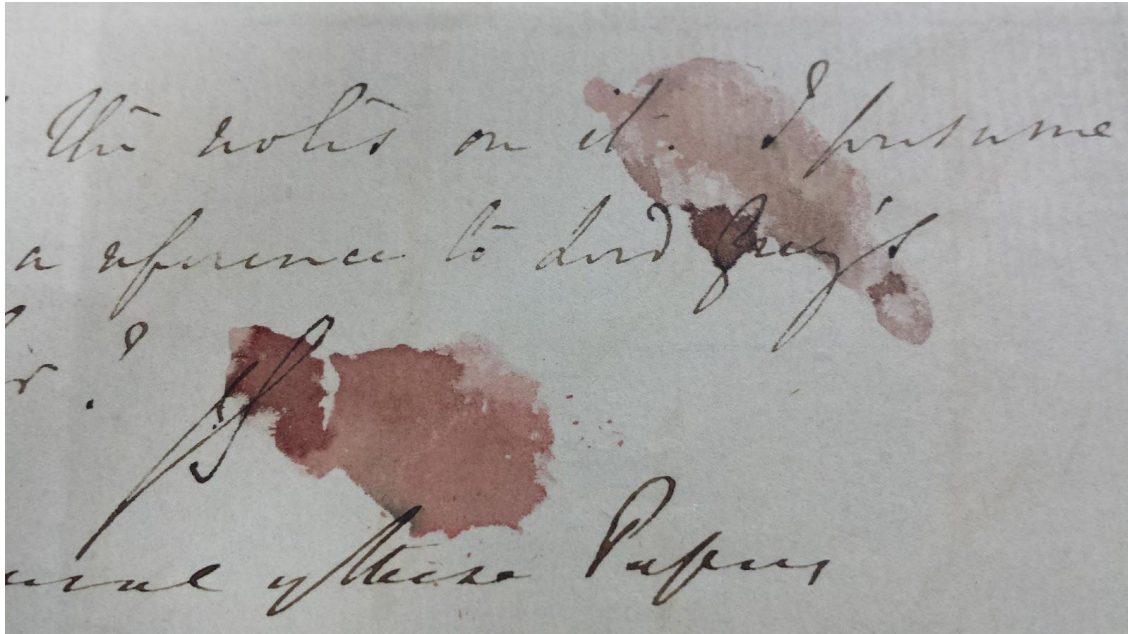 the notes on it. I presume
a reference to Lord Grey's
?
JS
of these Papers